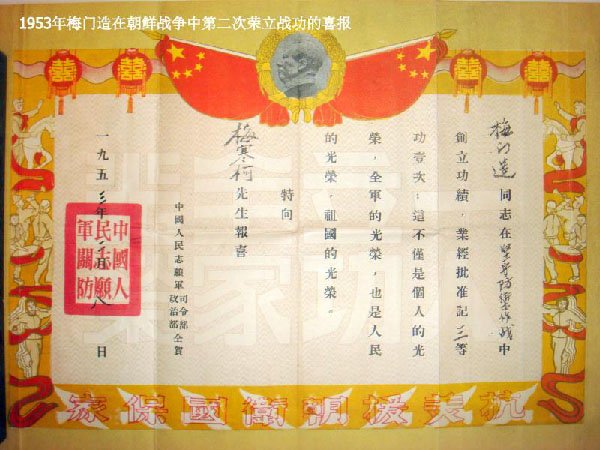 1953年梅门造在朝鲜战争中第二次荣立战功的喜报
囍 囍 囍 囍
梅门造同志在堅守防禦作战中
創立功績，業經批准記三等
功壹次，這不僅是個人的光
榮，全軍的光榮，也是人民
的光榮，祖國的光榮。
特向
梅寒柯先生報喜
中國人民志願軍
司令部
政治部
仝賀
一九五三年二月八日
中國人
民志願
軍關防
抗美援朝衛國保家